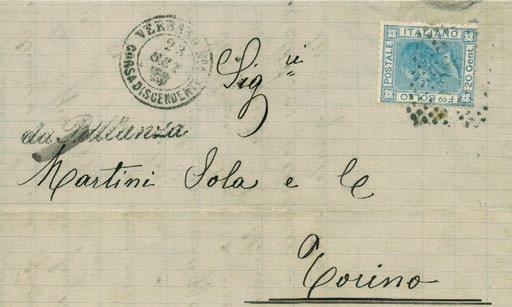 VERBANO Nº 1
CORSA DISCENDENTE
POSTALE ITALIANO
Fco BOLLO
20 Cent.
Sigri
da Pallanza
Martini Sola e C
Torino